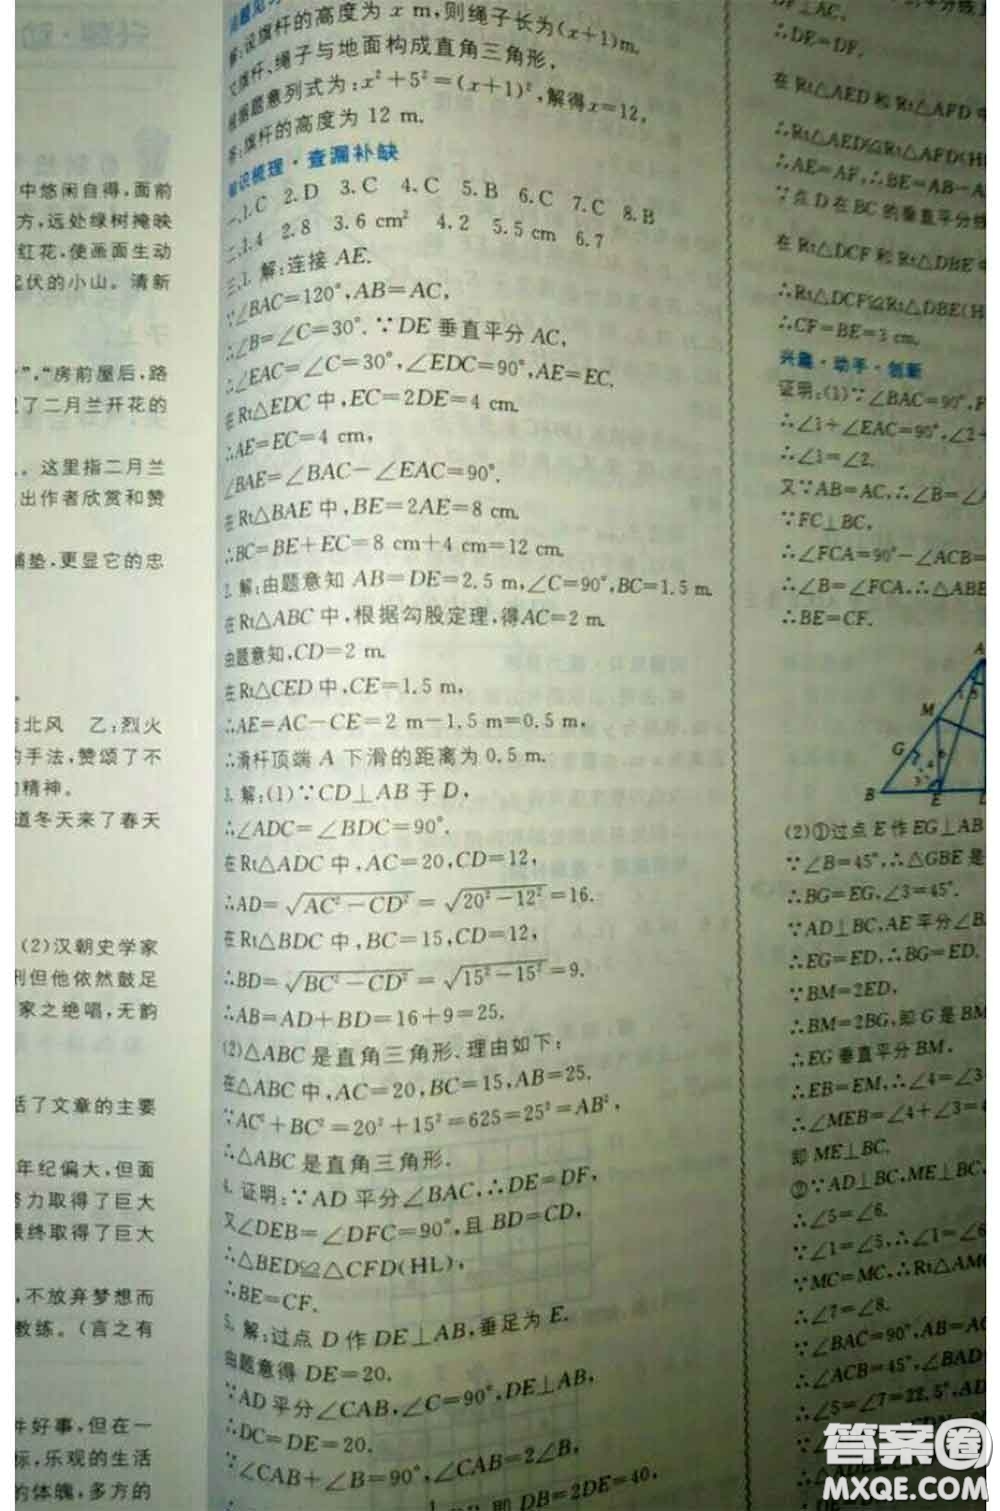 中悠闲自得,面前
方,远处绿树掩映
红花,使画面生动
伏的小山。清新
”,“房前屋后,路
了二月兰开花的
。这里指二月兰
出作者欣赏和赞
铺垫,更显它的忠
北风 乙:烈火
的手法,赞颂了不
的精神。
道冬天来了春天
(2)汉朝史学家
刑但他依然鼓足
家之绝唱,无韵
括了文章的主要
年纪偏大,但面
努力取得了巨大
最终取得了巨大
,不放弃梦想而
教练。(言之有
件好事,但在一
标,乐观的生活
的体魄,多方的
解:设旗杆的高度为 x m,则绳子长为(x+1)m.
又旗杆、绳子与地面构成直角三角形,
根据题意列式为:x²+5²=(x+1)²,解得x=12,
答:旗杆的高度为 12 m.
知识梳理·查漏补缺
一、1.C 2.D 3.C 4.C 5.B 6.C 7.C 8.B
二、1.4 2.8 3.6 cm² 4.2 5.5 cm 6.7
三、1. 解:连接 AE.
∵∠BAC=120°,AB=AC,
∴∠B=∠C=30°.∵DE 垂直平分 AC,
∴∠EAC=∠C=30°,∠EDC=90°,AE=EC.
在 Rt△EDC 中,EC=2DE=4 cm.
∴AE=EC=4 cm,
∠BAE=∠BAC-∠EAC=90°.
在 Rt△BAE 中,BE=2AE=8 cm.
∴BC=BE+EC=8 cm+4 cm=12 cm.
2. 解:由题意知 AB=DE=2.5 m,∠C=90°,BC=1.5 m.
在 Rt△ABC 中,根据勾股定理,得AC=2 m.
由题意知,CD=2 m.
在 Rt△CED 中,CE=1.5 m,
∴AE=AC-CE=2 m-1.5 m=0.5 m,
∴滑杆顶端 A 下滑的距离为 0.5 m.
3. 解:(1)∵CD⊥AB 于 D,
∴∠ADC=∠BDC=90°.
在 Rt△ADC 中,AC=20,CD=12,
∴AD=√(AC²-CD²)=√(20²-12²)=16.
在 Rt△BDC 中,BC=15,CD=12,
∴BD=√(BC²-CD²)=√(15²-15²)=9.
∴AB=AD+BD=16+9=25.
(2)△ABC 是直角三角形.理由如下:
在△ABC 中,AC=20,BC=15,AB=25.
∵AC²+BC²=20²+15²=625=25²=AB²,
∴△ABC 是直角三角形.
4. 证明:∵AD 平分∠BAC,∴DE=DF,
又∠DEB=∠DFC=90°,且 BD=CD,
∴△BED≌△CFD(HL),
∴BE=CF.
5. 解:过点 D 作 DE⊥AB,垂足为 E.
由题意得 DE=20.
∵AD 平分∠CAB,∠C=90°,DE⊥AB,
∴DC=DE=20.
∵∠CAB+∠B=90°,∠CAB=2∠B,
即 DB=2DE=40,
DF⊥AC.
∴DE=DF.
在 Rt△AED 和 Rt△AFD 中
∴Rt△AED≌Rt△AFD(H
∴AE=AF,∴BE=AB-A
∵点 D 在 BC 的垂直平分线
在 Rt△DCF 和 Rt△DBE 中
∴Rt△DCF≌Rt△DBE(H
∴CF=BE=3 cm.
兴趣·动手·创新
证明:(1)∵∠BAC=90°,F
∴∠1+∠EAC=90°,∠2+
∴∠1=∠2.
又∵AB=AC,∴∠B=∠A
∵FC⊥BC,
∴∠FCA=90°-∠ACB=
∴∠B=∠FCA,∴△ABE
∴BE=CF.
A
M
G
B
E
(2)①过点 E 作 EG⊥AB
∵∠B=45°,∴△GBE 是
∴BG=EG,∠3=45°.
∵AD⊥BC,AE 平分∠B
∴EG=ED,∴BG=ED.
∵BM=2ED,
∴BM=2BG,即 G 是 BM
∴EG 垂直平分 BM.
∴EB=EM,∴∠4=∠3
∴∠MEB=∠4+∠3=
即 ME⊥BC.
②∵AD⊥BC,ME⊥BC,
∴∠5=∠6.
∵∠1=∠5,∴∠1=∠6
∵MC=MC,∴Rt△AMC
∴∠7=∠8.
∵∠BAC=90°,AB=A
∴∠ACB=45°,∠BAD
∴∠5=∠7=22.5°,AD
答案圈
MXQE.COM